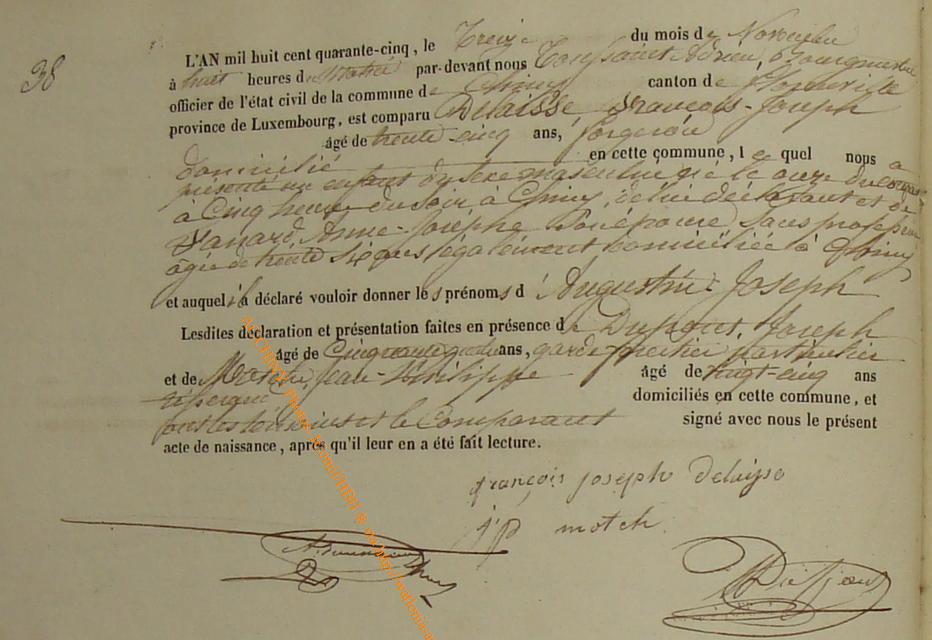 38
L'AN mil huit cent quarante-cinq, le Treize du mois de Novembre
à huit heures du Matin par-devant nous Toussaint Adrien, Bourgmestre
officier de l'état civil de la commune de Chiny canton de Florenville
province de Luxembourg, est comparu Delaisse François-Joseph
âgé de trente-cinq ans, forgeron
domicilié en cette commune, lequel nous a
présenté un enfant du sexe masculin né le onze du courant
à Cinq heures du soir à Chiny, de lui déclarant et de
Anne-Josèphe son épouse, sans profession
âgée de trente six ans également domiciliée à Chiny
et auquel il a déclaré vouloir donner les prénoms d'Augustin-Joseph
Lesdites déclaration et présentation faites en présence de Joseph
âgé de Cinquante quatre ans, garde-forestier particulier
et de Jean-Philippe âgé de vingt-cinq ans
domiciliés en cette commune, et
les témoins et le Comparant signé avec nous le présent
acte de naissance, après qu'il leur en a été fait lecture.
françois joseph delaisse
j p motch